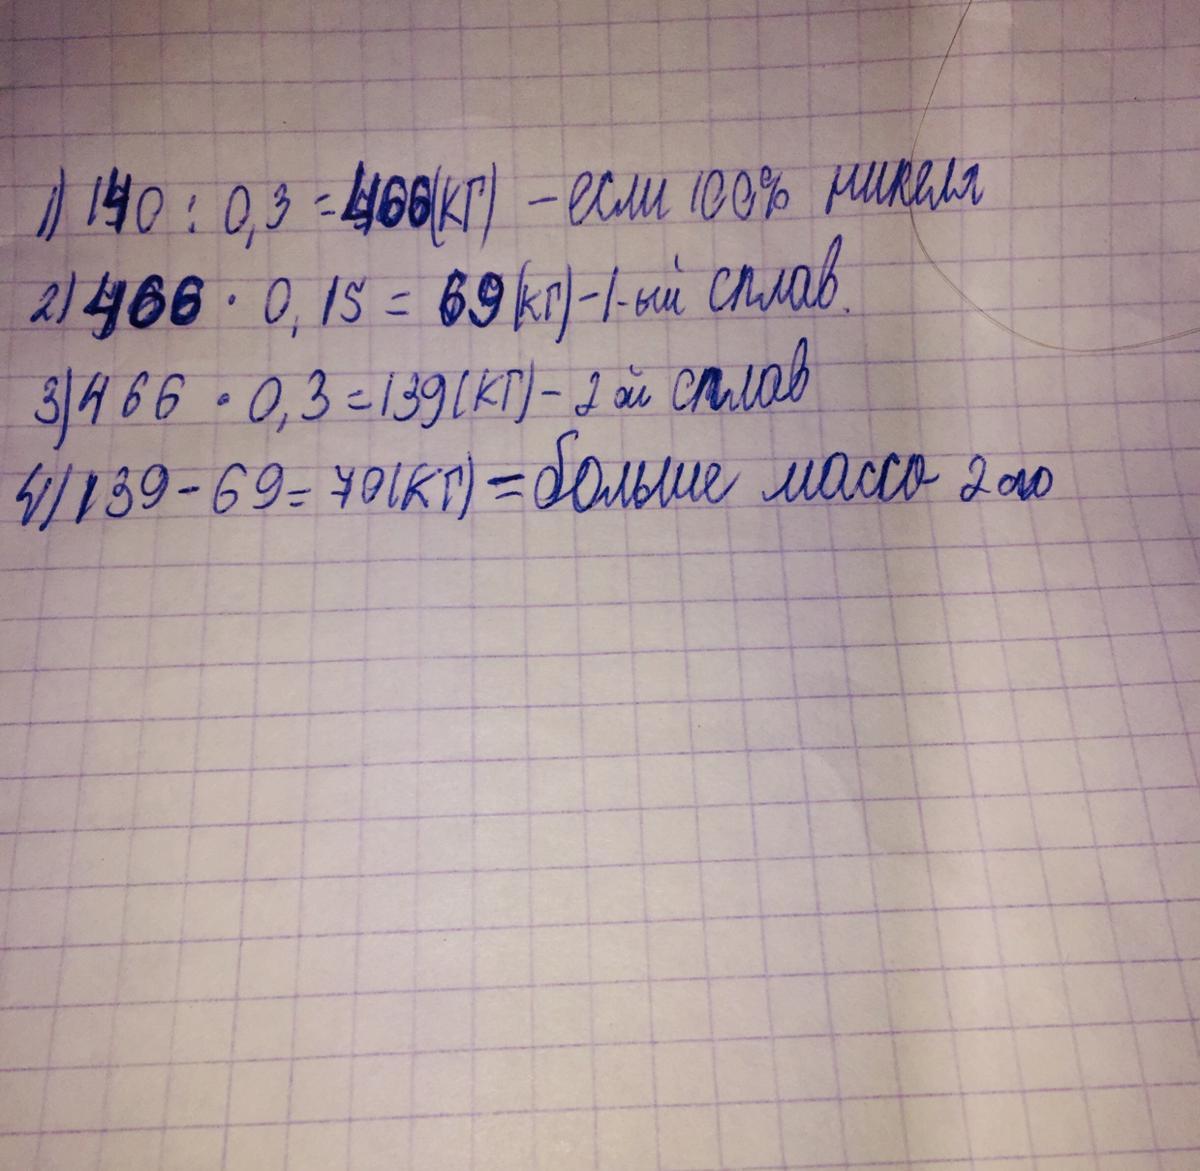 1) 140 : 0,3 = 466(кг) - если 100% никеля
2) 466 · 0,15 = 69(кг) - 1-ый сплав.
3) 466 · 0,3 = 139(кг) - 2 ой сплав
4) 139 - 69 = 70(кг) = больше массо 2 ого